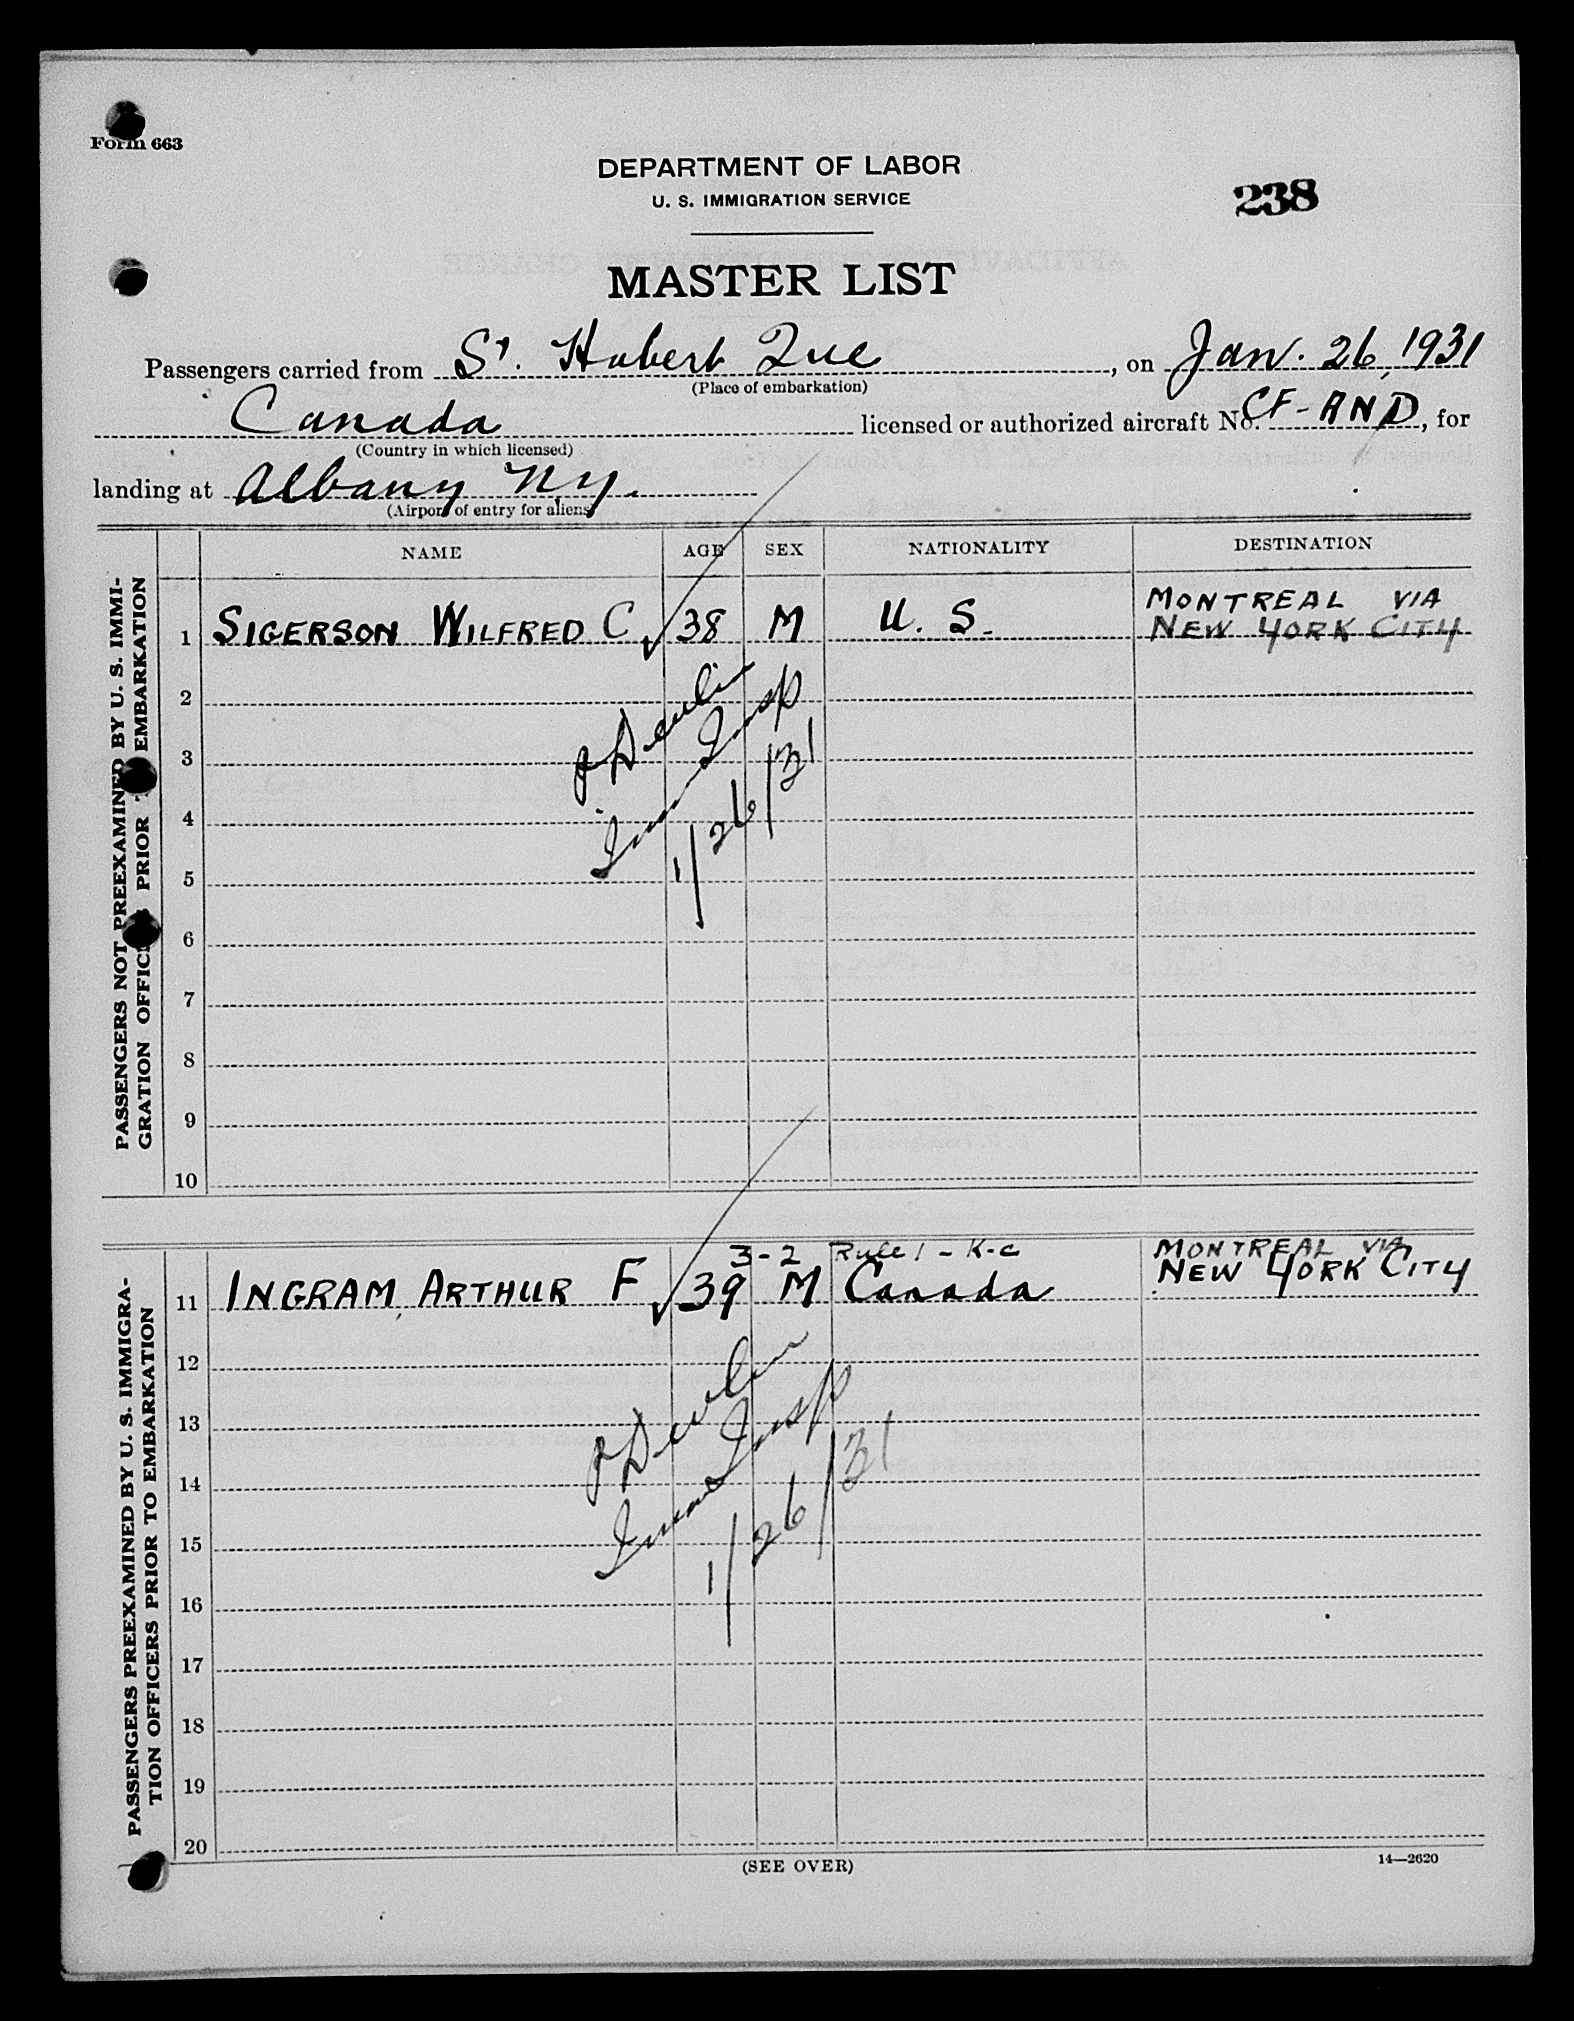 Form 663
DEPARTMENT OF LABOR
U. S. IMMIGRATION SERVICE
238
MASTER LIST
Passengers carried from St. Hubert Que, on Jan. 26, 1931
(Place of embarkation)
Canada licensed or authorized aircraft No. CF-AND, for
(Country in which licensed)
landing at Albany N.Y.
(Airport of entry for aliens)
NAME AGE SEX NATIONALITY DESTINATION
PASSENGERS NOT PREEXAMINED BY U. S. IMMI-
GRATION OFFICERS PRIOR TO EMBARKATION
MONTREAL VIA
1 SIGERSON WILFRED C 38 M U. S. NEW YORK CITY
2
3
4
5
6
7
8
9
10
Devlin
Imm Insp
1/26/31
PASSENGERS PREEXAMINED BY U. S. IMMIGRA-
TION OFFICERS PRIOR TO EMBARKATION
3-2 Rule 1 - K-c MONTREAL VIA
11 INGRAM, ARTHUR F 39 M Canada NEW YORK CITY
12
13
14
15
16
17
18
19
20
Devlin
Imm Insp
1/26/31
(SEE OVER)
14—2620